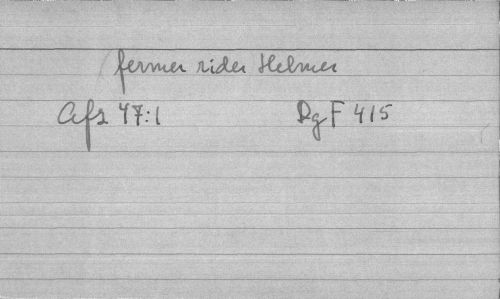 fermer rider Helmer
Afz 47:1 DgF 415